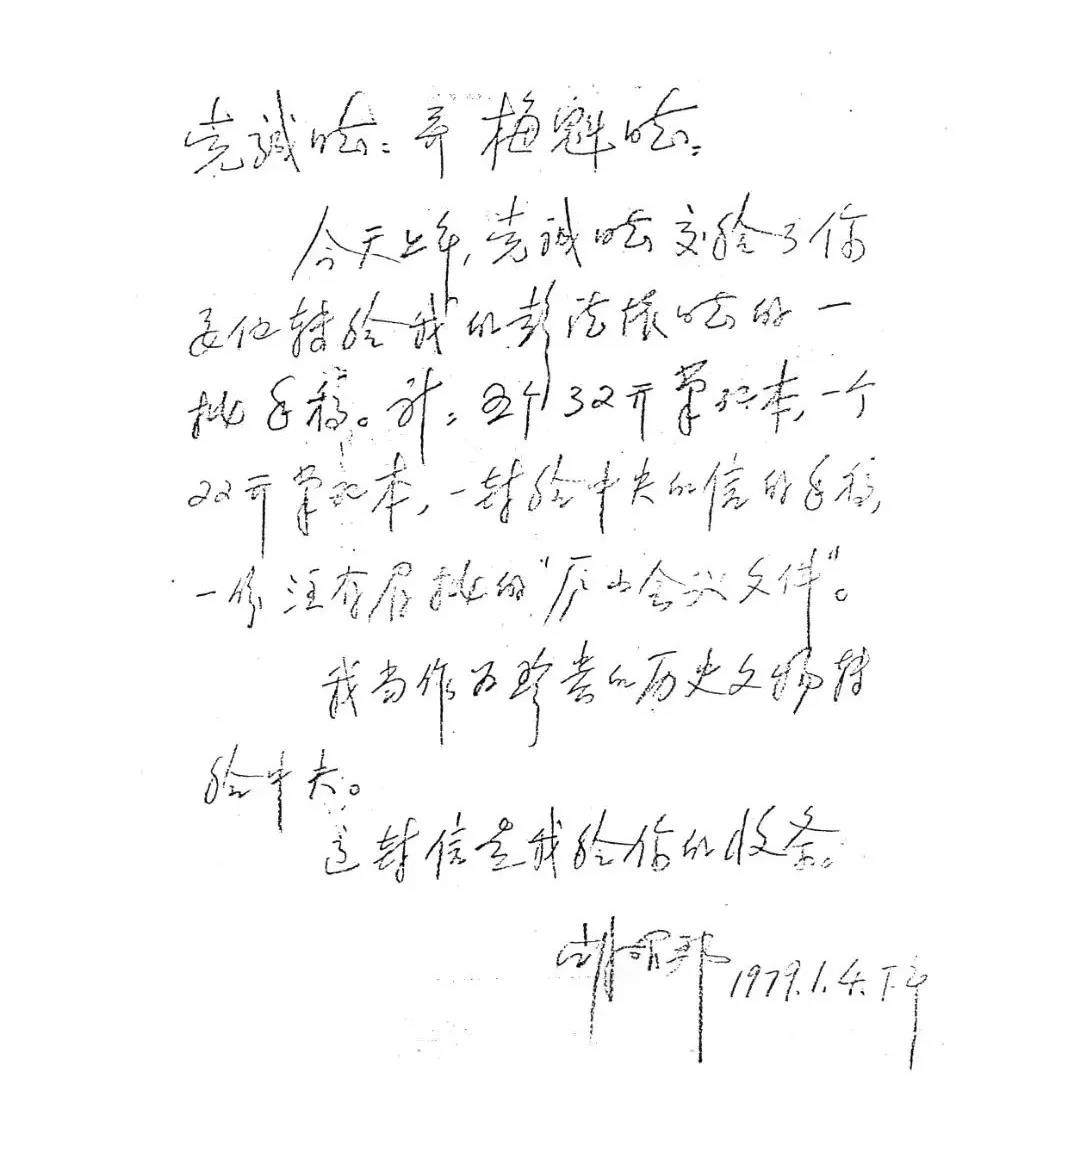 克诚同志：并梅魁同志：
今天上午，克诚同志交给了你
要他转给我的彭德怀同志的一
批手稿。计：五个32开笔记本，一个
22开笔记本，一封给中央的信的手稿，
一份注有眉批的“庐山会议文件”。
我当作为珍贵的历史文物转
给中央。
这封信是我给你的收条。
胡耀邦 1979.1.4.下午